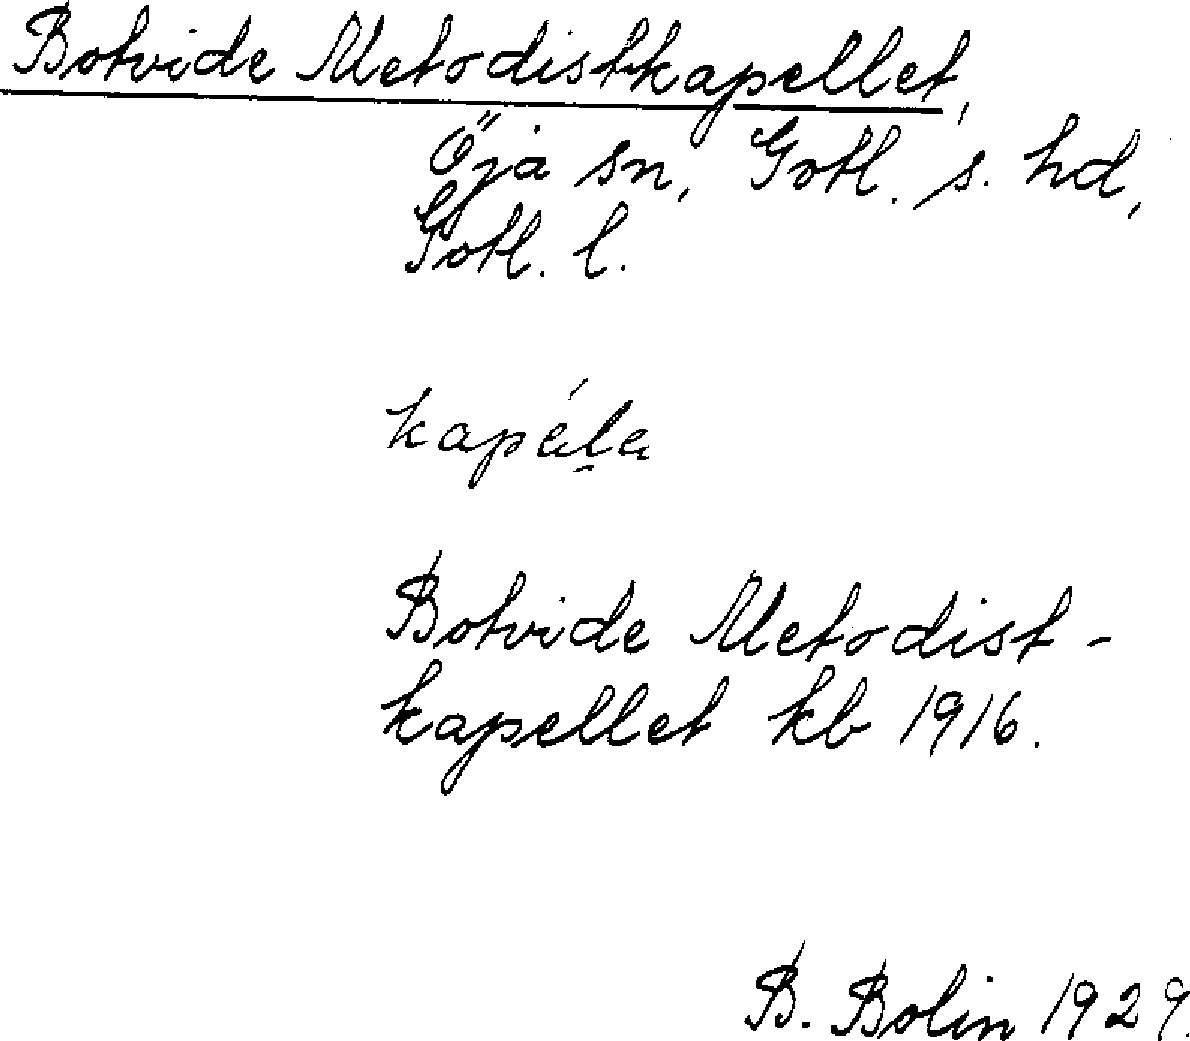 Botvide Metodistkapellet,
Öja sn, Gotl. s. hd,
Gotl. l.
kapäla
Botvide Metodist-
kapellet kb 1916.
B. Bolin 1929.